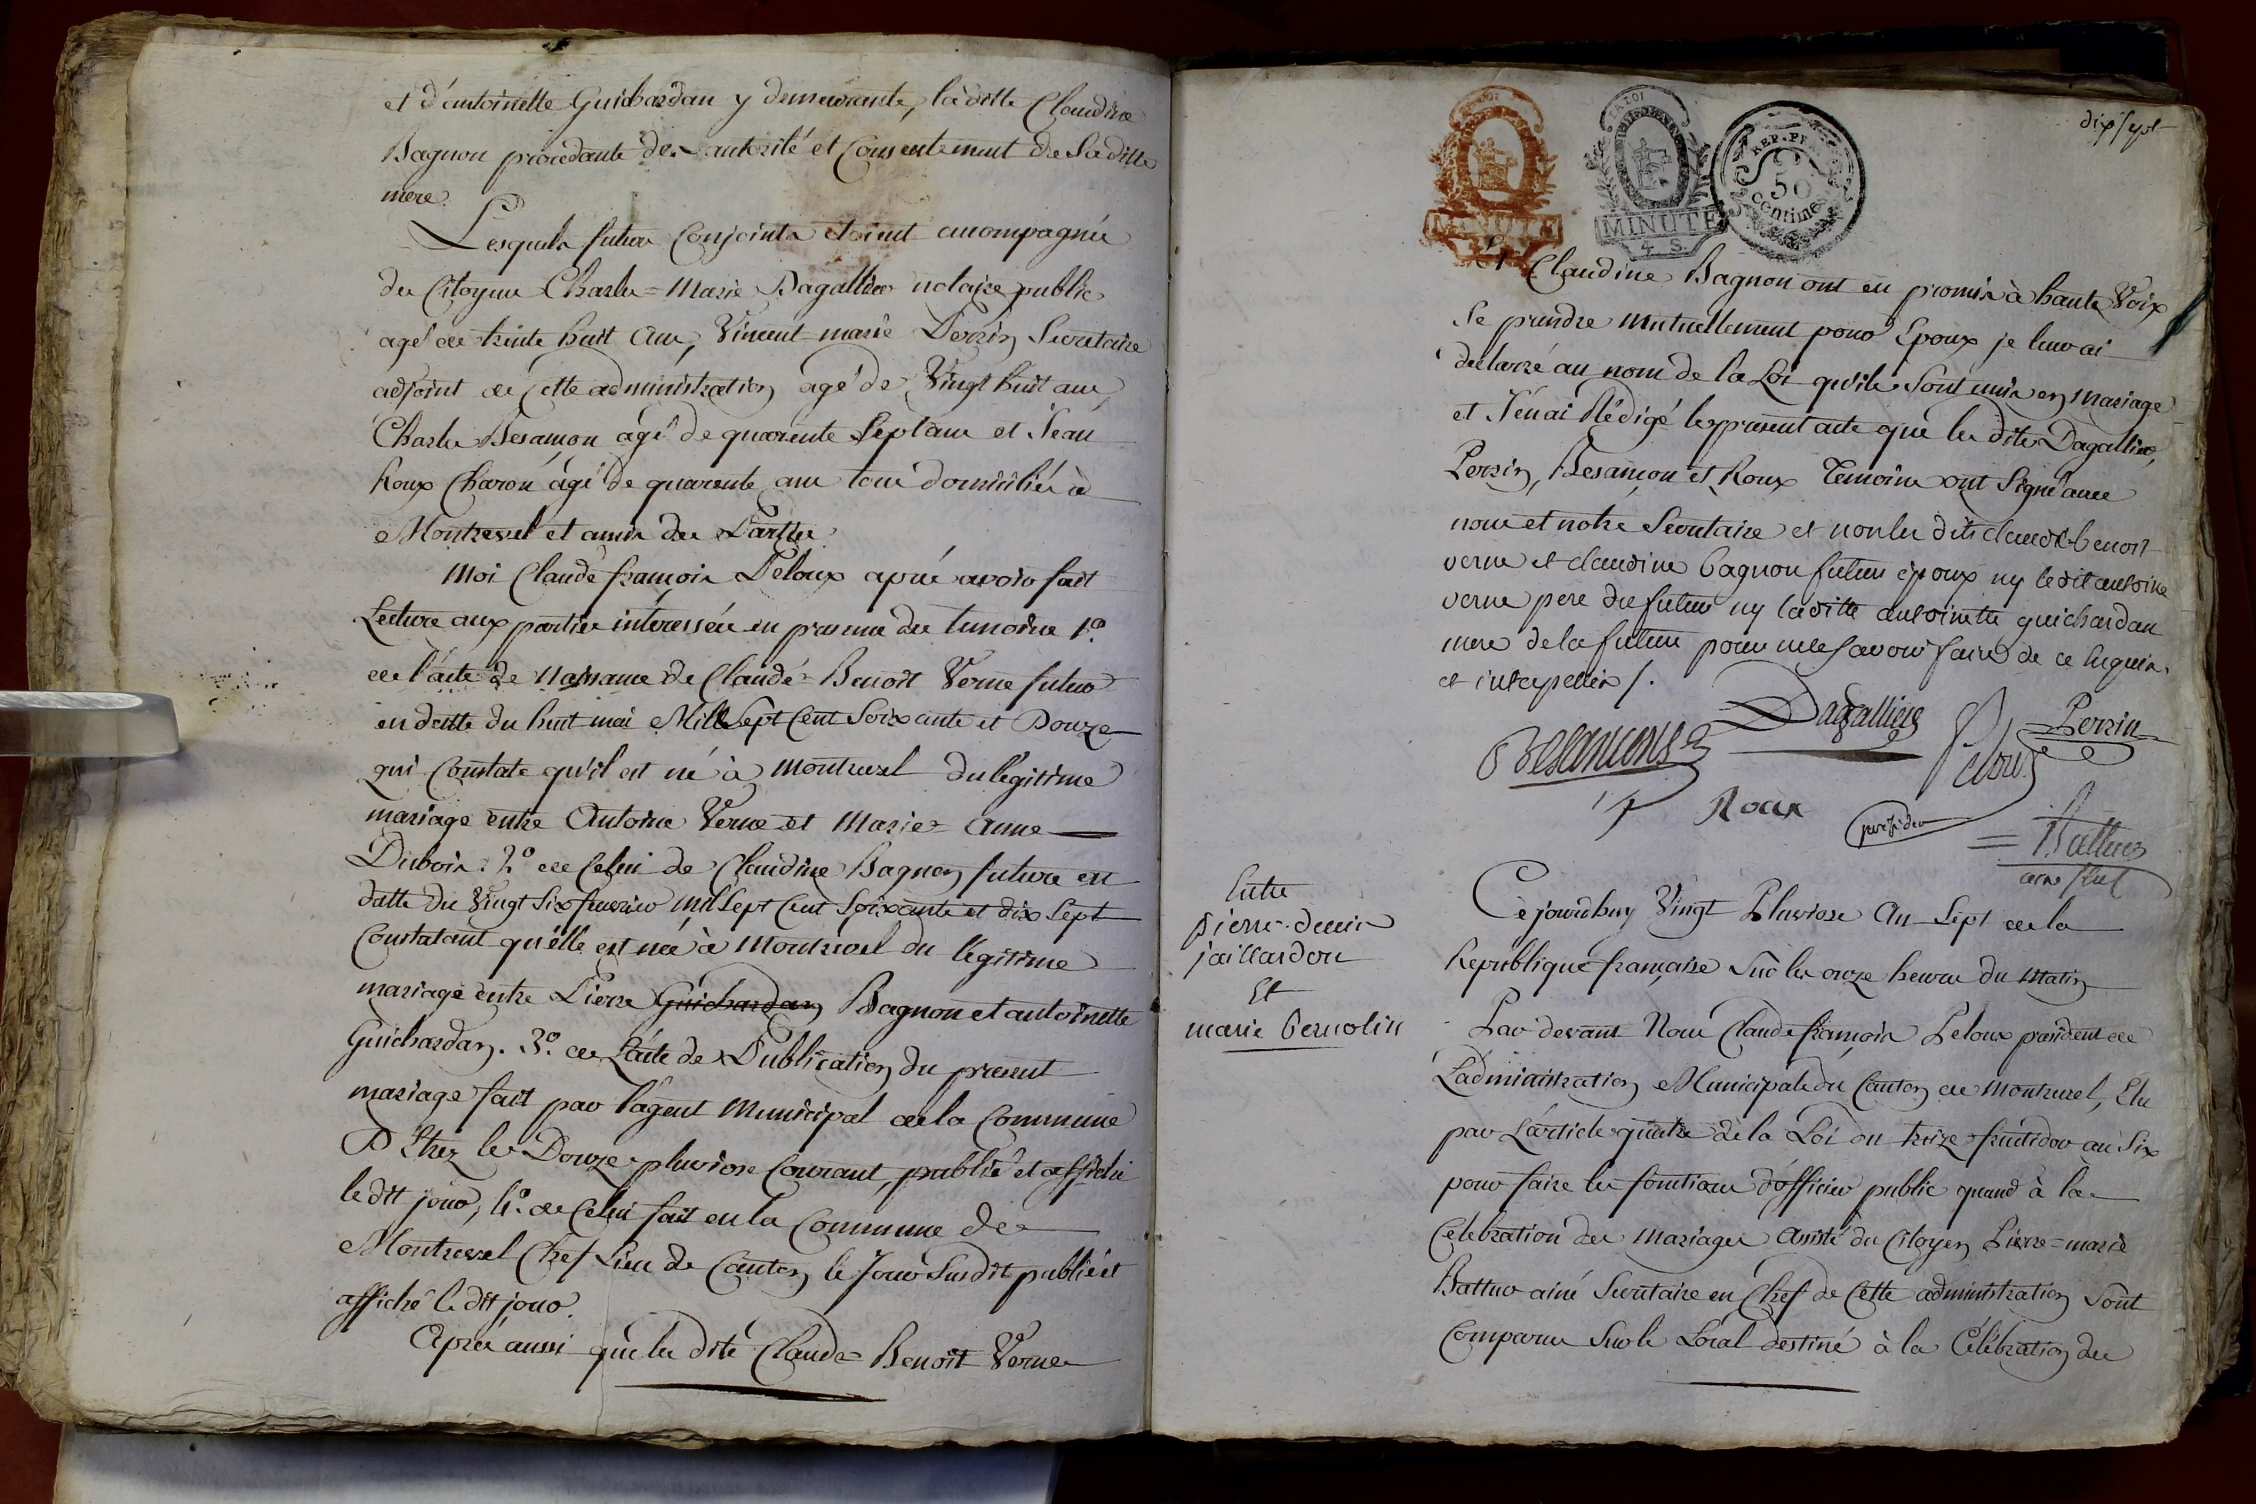 et d'antoinette Guichardan y demeurante, la ditte Claudine
Bagnon procedante de l'autorité et Consentement de Saditte
mere.
Lesquels futurs Conjoints étoient accompagnés
des Citoyens Charles = Marie Dagallier notaire public
agé de trente huit ans, Vincent marie Perrin Secretaire
adjoint de Cette administration agé de Vingt huit ans,
Charles Besançon agé de quarente Sept ans et Jean
Roux Charon agé de quarente ans tous domiciliés à
Montrevel et amis des Parties.
Moi Claude françois Peloux après avoir fait
Lecture aux parties intéressées en presence des temoins 1.o
de l'acte de Naissance de Claude = Benoit Verne futur
en datte du huit mai Mil Sept Cent Soixante et Douze
qui Constate qu'il est né à Montrevel du légitime
mariage entre Antoine Verne et Marie = Anne
Dubois. 2.o de Celui de Claudine Bagnon future en
datte du Vingt Six fevrier Mil Sept Cent Soixante et dix Sept
Constatant qu'elle est née à Montrevel du légitime
mariage entre Pierre Guichardan Bagnon et antoinette
Guichardan. 3.o de L'acte de Publication du present
mariage fait par l'agent Municipal de la Commune
D'Etrez le Douze pluviose Courant, publié et affiché
le dit jour, 4.o de Celui fait en la Commune de
Montrevel Chef Lieu de Canton le Jour Susdit publié et
affiché le dit jour.
Après aussi que les dits Claude = Benoit Verne
dix sept
MINUTE
MINUTE
4 S.
REP. FR.
50
centimes
et Claudine Bagnon ont eu promis à haute Voix
Se prendre Mutuellement pour Epoux je leur ai
declaré au nom de la Loi qu'ils Sont unis en Mariage
et J'en ai Rédigé le present acte que les dits Dagallier,
Perrin, Besançon et Roux Temoins ont Signé avec
nous et notre Secretaire et non les dits claude-benoit
verne et claudine bagnon futurs époux ny ledit antoine
verne pere du futur ny laditte antoinette guichardan
mere de la future pour ne le savoir faire de ce enquis
et interpellés /.
Dagallier
Perrin
Besançons
Peloux
Roux
president
= Battur
ainé
Entre
pierre-denis
jaillardon
Et
marie bernolin
Cejourdhuy Vingt Pluviose An Sept de la
Republique française Sur les onze heures du Matin
Par devant Nous Claude françois Peloux president de
L'administration Municipale du Canton de Montrevel, Elu
par L'article quatre de la Loi du treize fructidor an Six
pour faire les fonctions d'officier public quand à la
Celebration des Mariages Assisté du Citoyen Pierre = marie
Battur ainé Secretaire en Chef de Cette administration Sont
Comparus Sur le Local destiné à la Célébration des